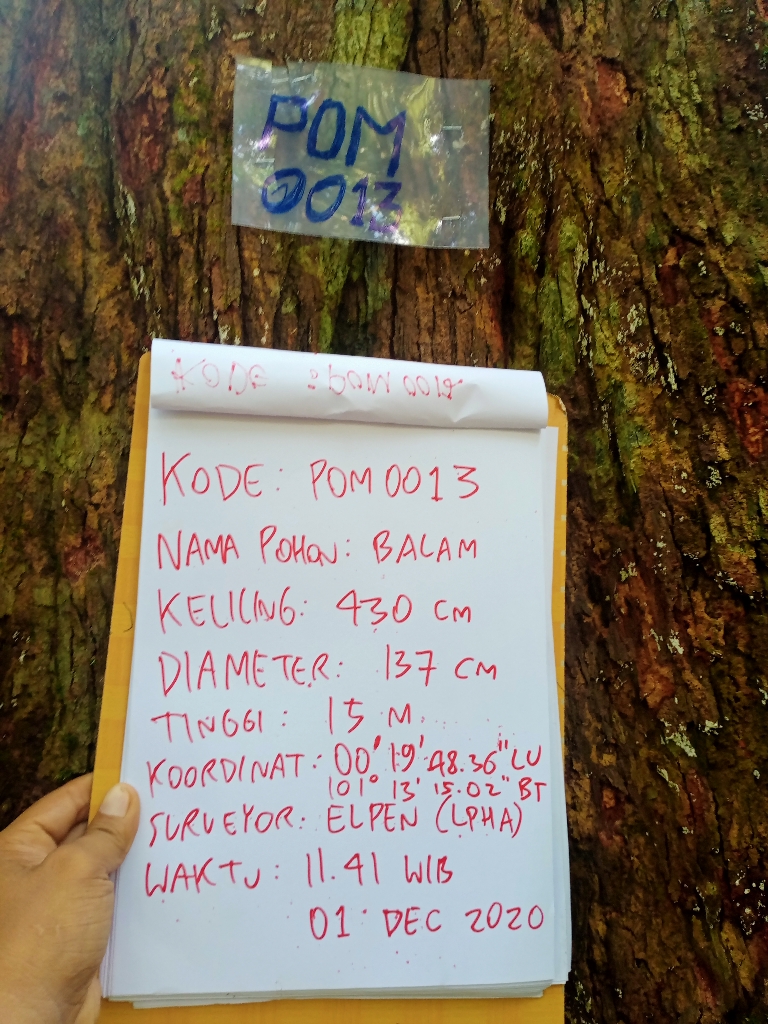 POM
0013
KODE : POM 0013
NAMA POHON : BALAM
KELILING : 430 CM
DIAMETER : 137 CM
TINGGI : 15 M.
KOORDINAT : 00° 19' 48.36" LU
101° 13' 15.02" BT
SURVEYOR : ELPEN (LPHA)
WAKTU : 11.41 WIB
01 DEC 2020